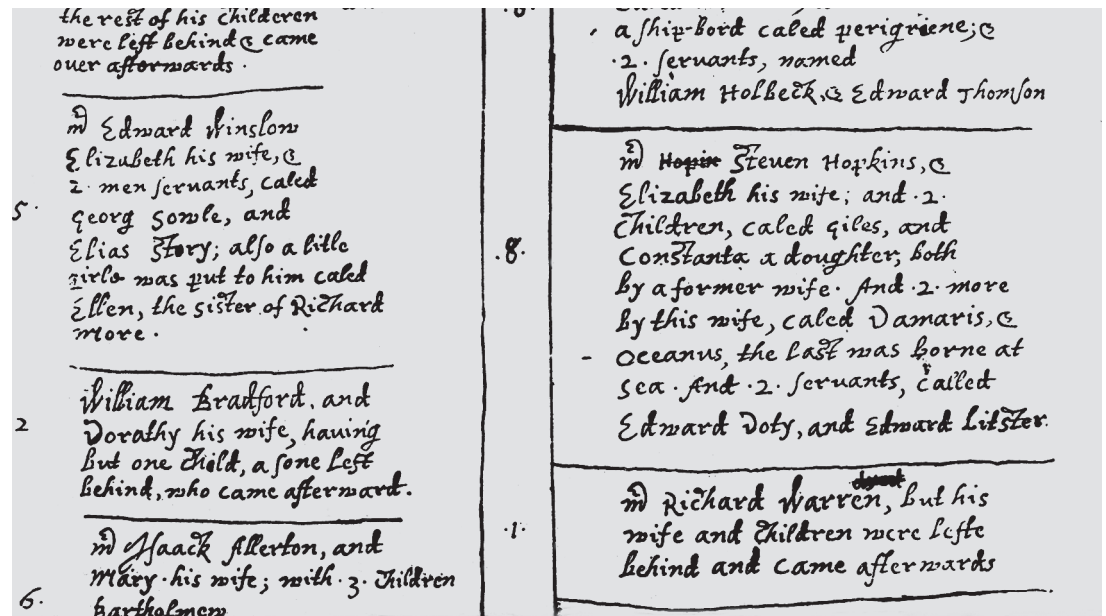 the rest of his children
were left behind & came
over afterwards.
mr Edward Winslow
Elizabeth his wife, &
2. men servants, caled
5.
Georg Sowle, and
Elias Story; also a litle
girle was put to him caled
Ellen, the sister of Richard
More.
William Bradford, and
2
Dorathy his wife, having
but one child, a sone left
behind, who came afterward.
mr Isaack Allerton, and
Mary his wife; with 3. children
6.
Bartholmew
.8.
.1.
a ship-bord caled perigriene; &
.2. servants, named
William Holbeck, & Edward Thomson
mr Hopkin Steven Hopkins, &
Elizabeth his wife; and .2.
children, caled Giles, and
Constanta a doughter, both
by a former wife. And .2. more
by this wife, caled Damaris, &
- Oceanus, the last was borne at
sea. And .2. servants, called
Edward Doty, and Edward Litster.
mr Richard Warren, but his
wife and children were lefte
behind and came afterwards